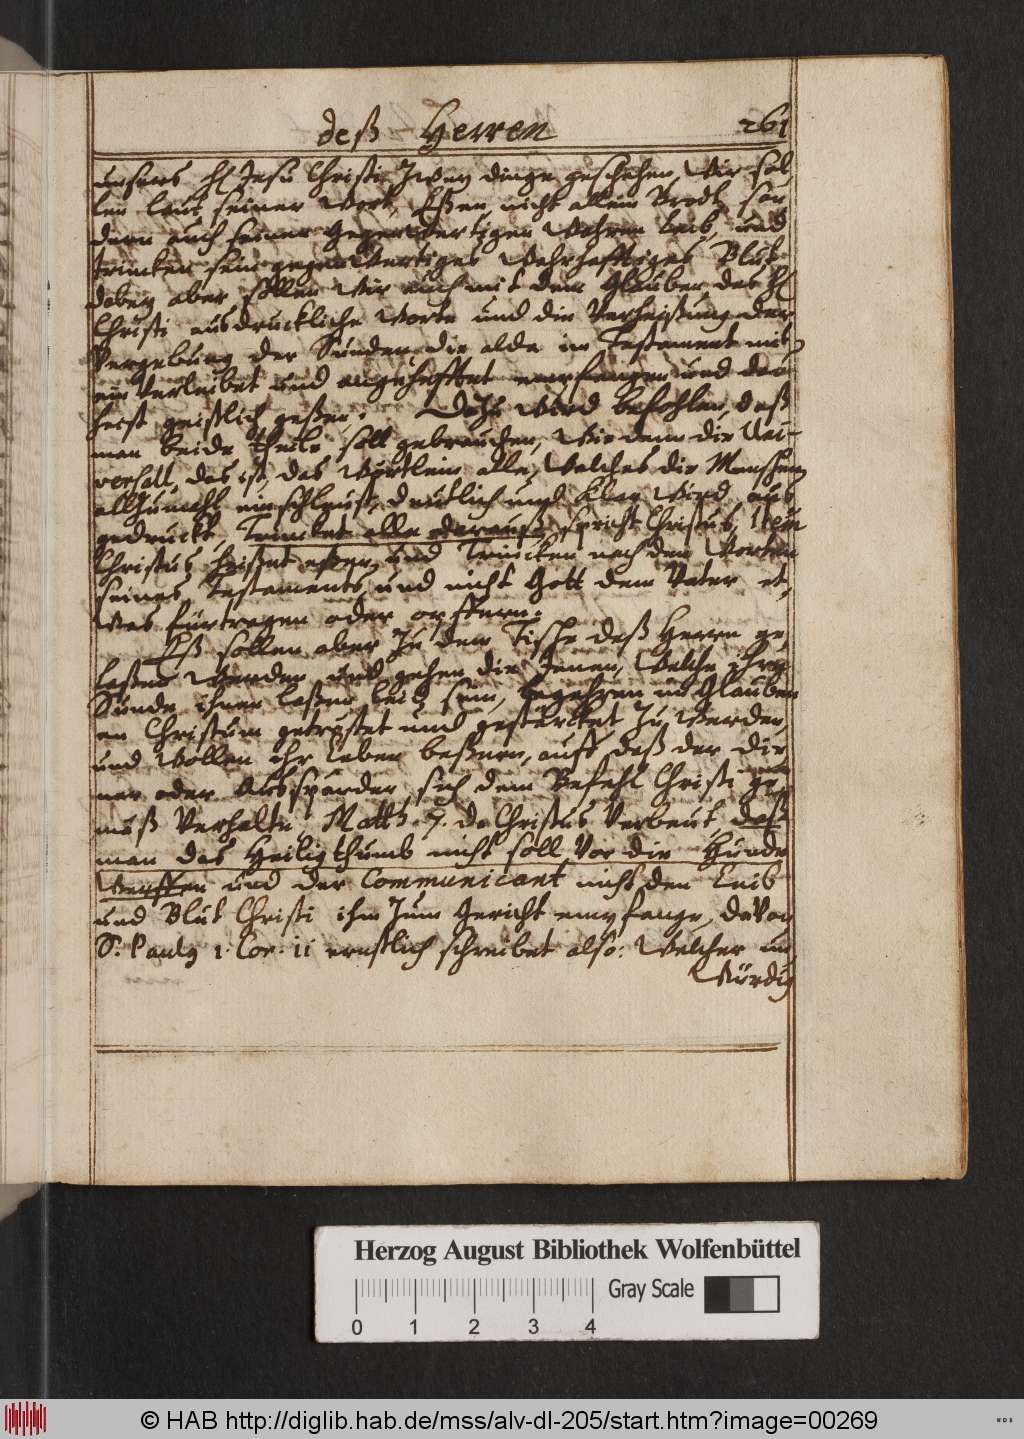 deß Herren 261
unsers H Jesu Christi Zwey dinge geschehen, Wir sol,
len laut seiner Wort, Eßen nicht allein Brodt, son
dern auch seinen gegenwertigen Wahren Leib, und
trincken sein gegenwertiges Wahrhafftiges Blut
dabey aber sollen Wir auch mit dem Glauben des H
Christi ausdruckliche Worte und die Verheißung der
Vergebung der Sünden, die alda im Testament mit
ein Verleibet und angehefftet empfangen und das
heist geistlich geßen. Dazu Wird befohlen, daß
man beide theile soll gebrauchen, Wie denn die Uni-
versall, das ist, das Wörtlein alle, Welches die Menschen
allzumahl einschleust, deutlich und klar Wird aus
gedruckt, Trincket alle daraus, spricht Christus, Item
Christus heißet eßen und Trincken nach den Worten
seines Testaments, und nicht Gott dem Vater et,
Was fürtragen oder opffern.
Eß sollen aber Zu dem Tische deß Herrn ge,
laßen Werden und gehen die Jenen, Welche ihre
Sünde ihnen laßen leid sein, begehren im Glauben
an Christum getröstet und gestärcket Zu Werden,
und Wollen ihr leben beßern, auff daß der Die
ner oder Ausspänder sich dem Befehl Christi ge,
meß Verhalte Matth. 7. da Christus Verbeut, daß
man das Heiligthumb nicht soll Vor die Hunde
Werffen und der Communicant nicht den Leib
und Blut Christi ihm Zum Gericht empfange, davon
S. Paulus 1. Cor. 11 ernstlich schreibet also: Welcher un
Würdig
Herzog August Bibliothek Wolfenbüttel
Gray Scale
0 1 2 3 4
© HAB http://diglib.hab.de/mss/alv-dl-205/start.htm?image=00269